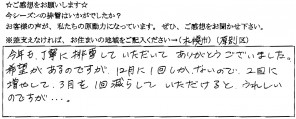 ☆ご感想をお願いします☆
今シーズンの排雪はいかがでしたか？
お客様の声が、私たちの原動力になっています。ぜひ、ご感想をお聞かせ下さい。
※差支えなければ、お住まいの地域をご記入ください→（札幌市）（厚別区）
今年も、丁寧に排雪していただいてありがとうございました。
希望があるのですが、12月に1回しかないので、2回に
増やして、3月を1回減らしていただけると、うれしい
のですが…。